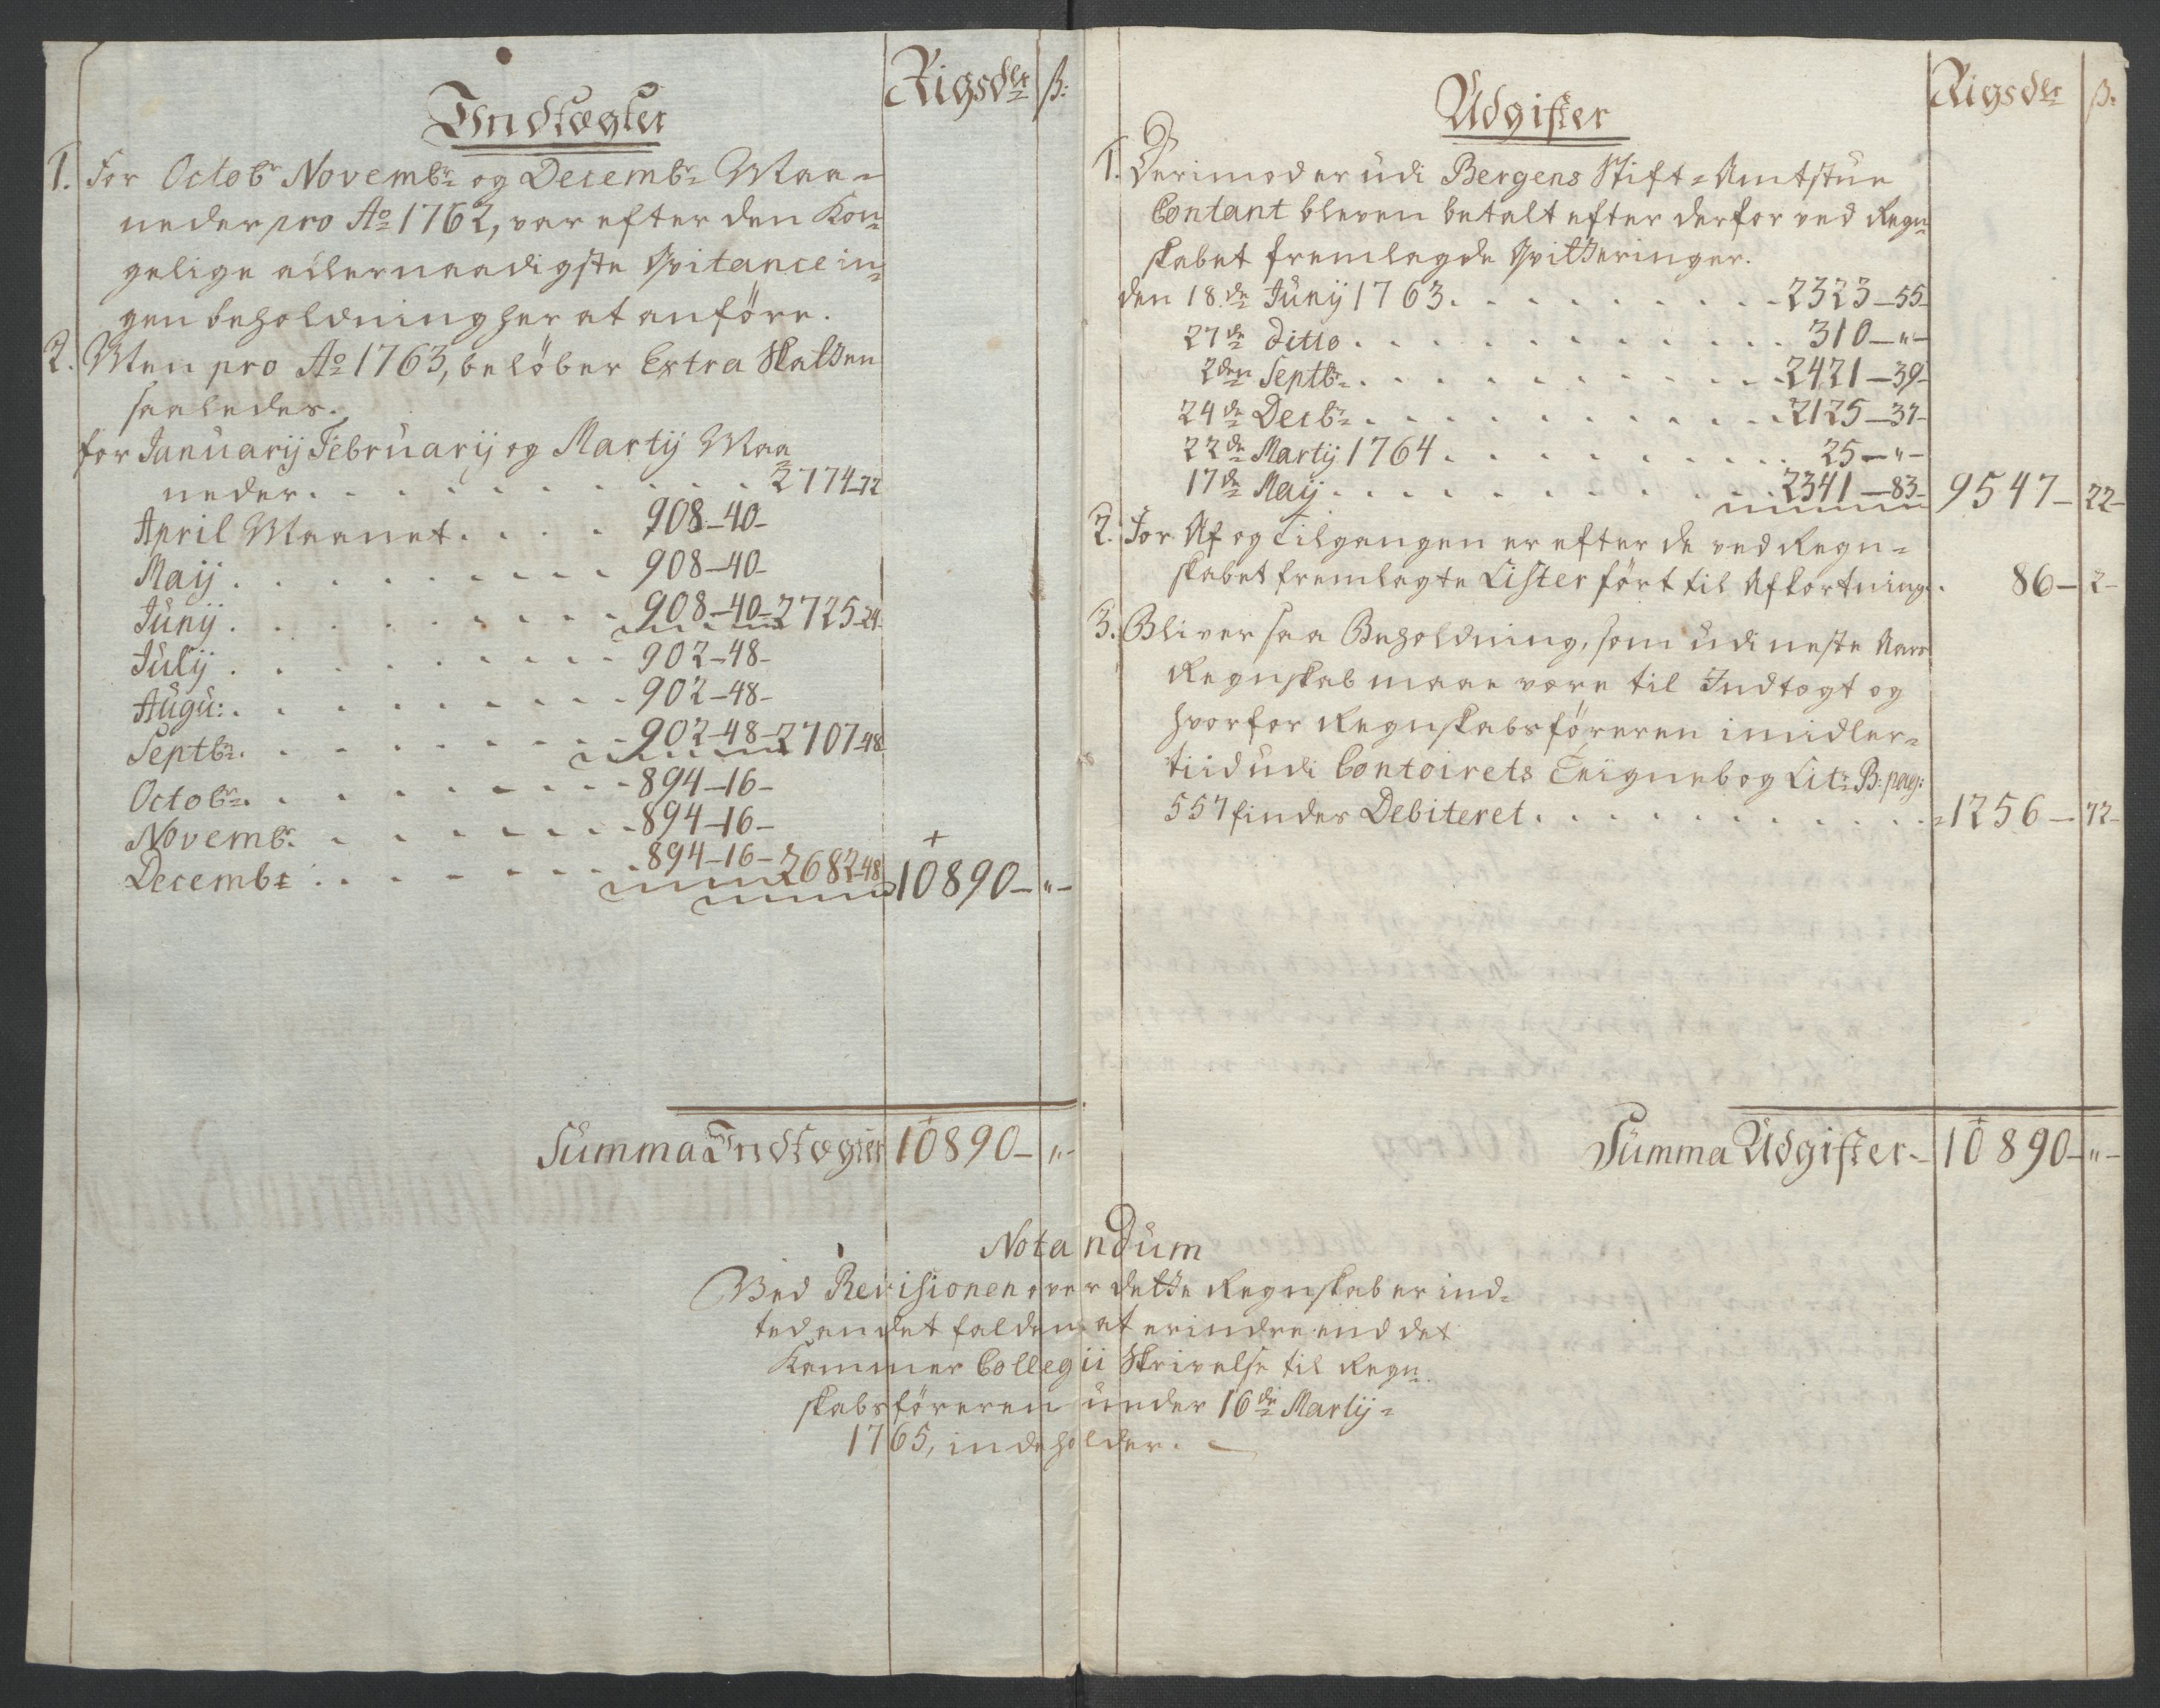 Indtægter
Rigsdlr ß:
1. For Octobr Novembr og Decembr Maa-
neder pro Ao 1762, var efter den Kon-
gelige allernaadigste Qvitance in-
gen beholdning her at anföre.
2. Men pro Ao 1763, belöber Extra Skatten
saaledes.
for Januarij Februarij og Martij Maa
neder . . . . . . . . . . 2774-72
April Maanet . . . . 908-40-
Maij . . . . . . . . . 908-40-
Junij . . . . . . . . . 908-40- 2725-24
Julij . . . . . . . . . 902-48-
Augu: . . . . . . . . . 902-48-
Septbr. . . . . . . . . 902-48- 2707-48
Octobr. . . . . . . . . 894-16-
Novembr. . . . . . . . 894-16-
Decembr . . . . . . . . 894-16- 2682-48 10890- "-
Summa Indtægter 10890- "-
Udgifter
Rigsdlr ß.
1. Derimod er udi Bergens Stift-Amtstue
Contant bleven betalt efter derfor ved Regn-
skabet fremlagde Qvitteringer.
den 18de Junij 1763 . . . . . . . . . 2323-55-
27de ditto . . . . . . . . . . . 310-"-
2den Septbr . . . . . . . . . . . 2421-39-
24de Decbr . . . . . . . . . . . 2125-37-
22de Martij 1764 . . . . . . . . . 25-"-
17de Maij . . . . . . . . . . . 2341-83- 9547- 22-
2. For Af og tilgangen er efter de ved Regn-
skabet fremlagte Lister fört til Afkortning . 86- 2-
3. Bliver saa Beholdning, som udi neste Aars
Regnskab maae være til Indtægt og
hvorfor Regnskabsföreren imidler-
tiid udi Contoirets Teignebog Litr B: pag:
557 findes Debiteret . . . . . . . . . . . 1256- 72-
Summa Udgifter - 10890- "-
Notandum
Ved Revisionen over dette Regnskab er ind-
ted andet falden at erindre end det
Kammer Collegii Skrivelse til Regn-
skabsföreren under 16de Martij
1765, indeholder.